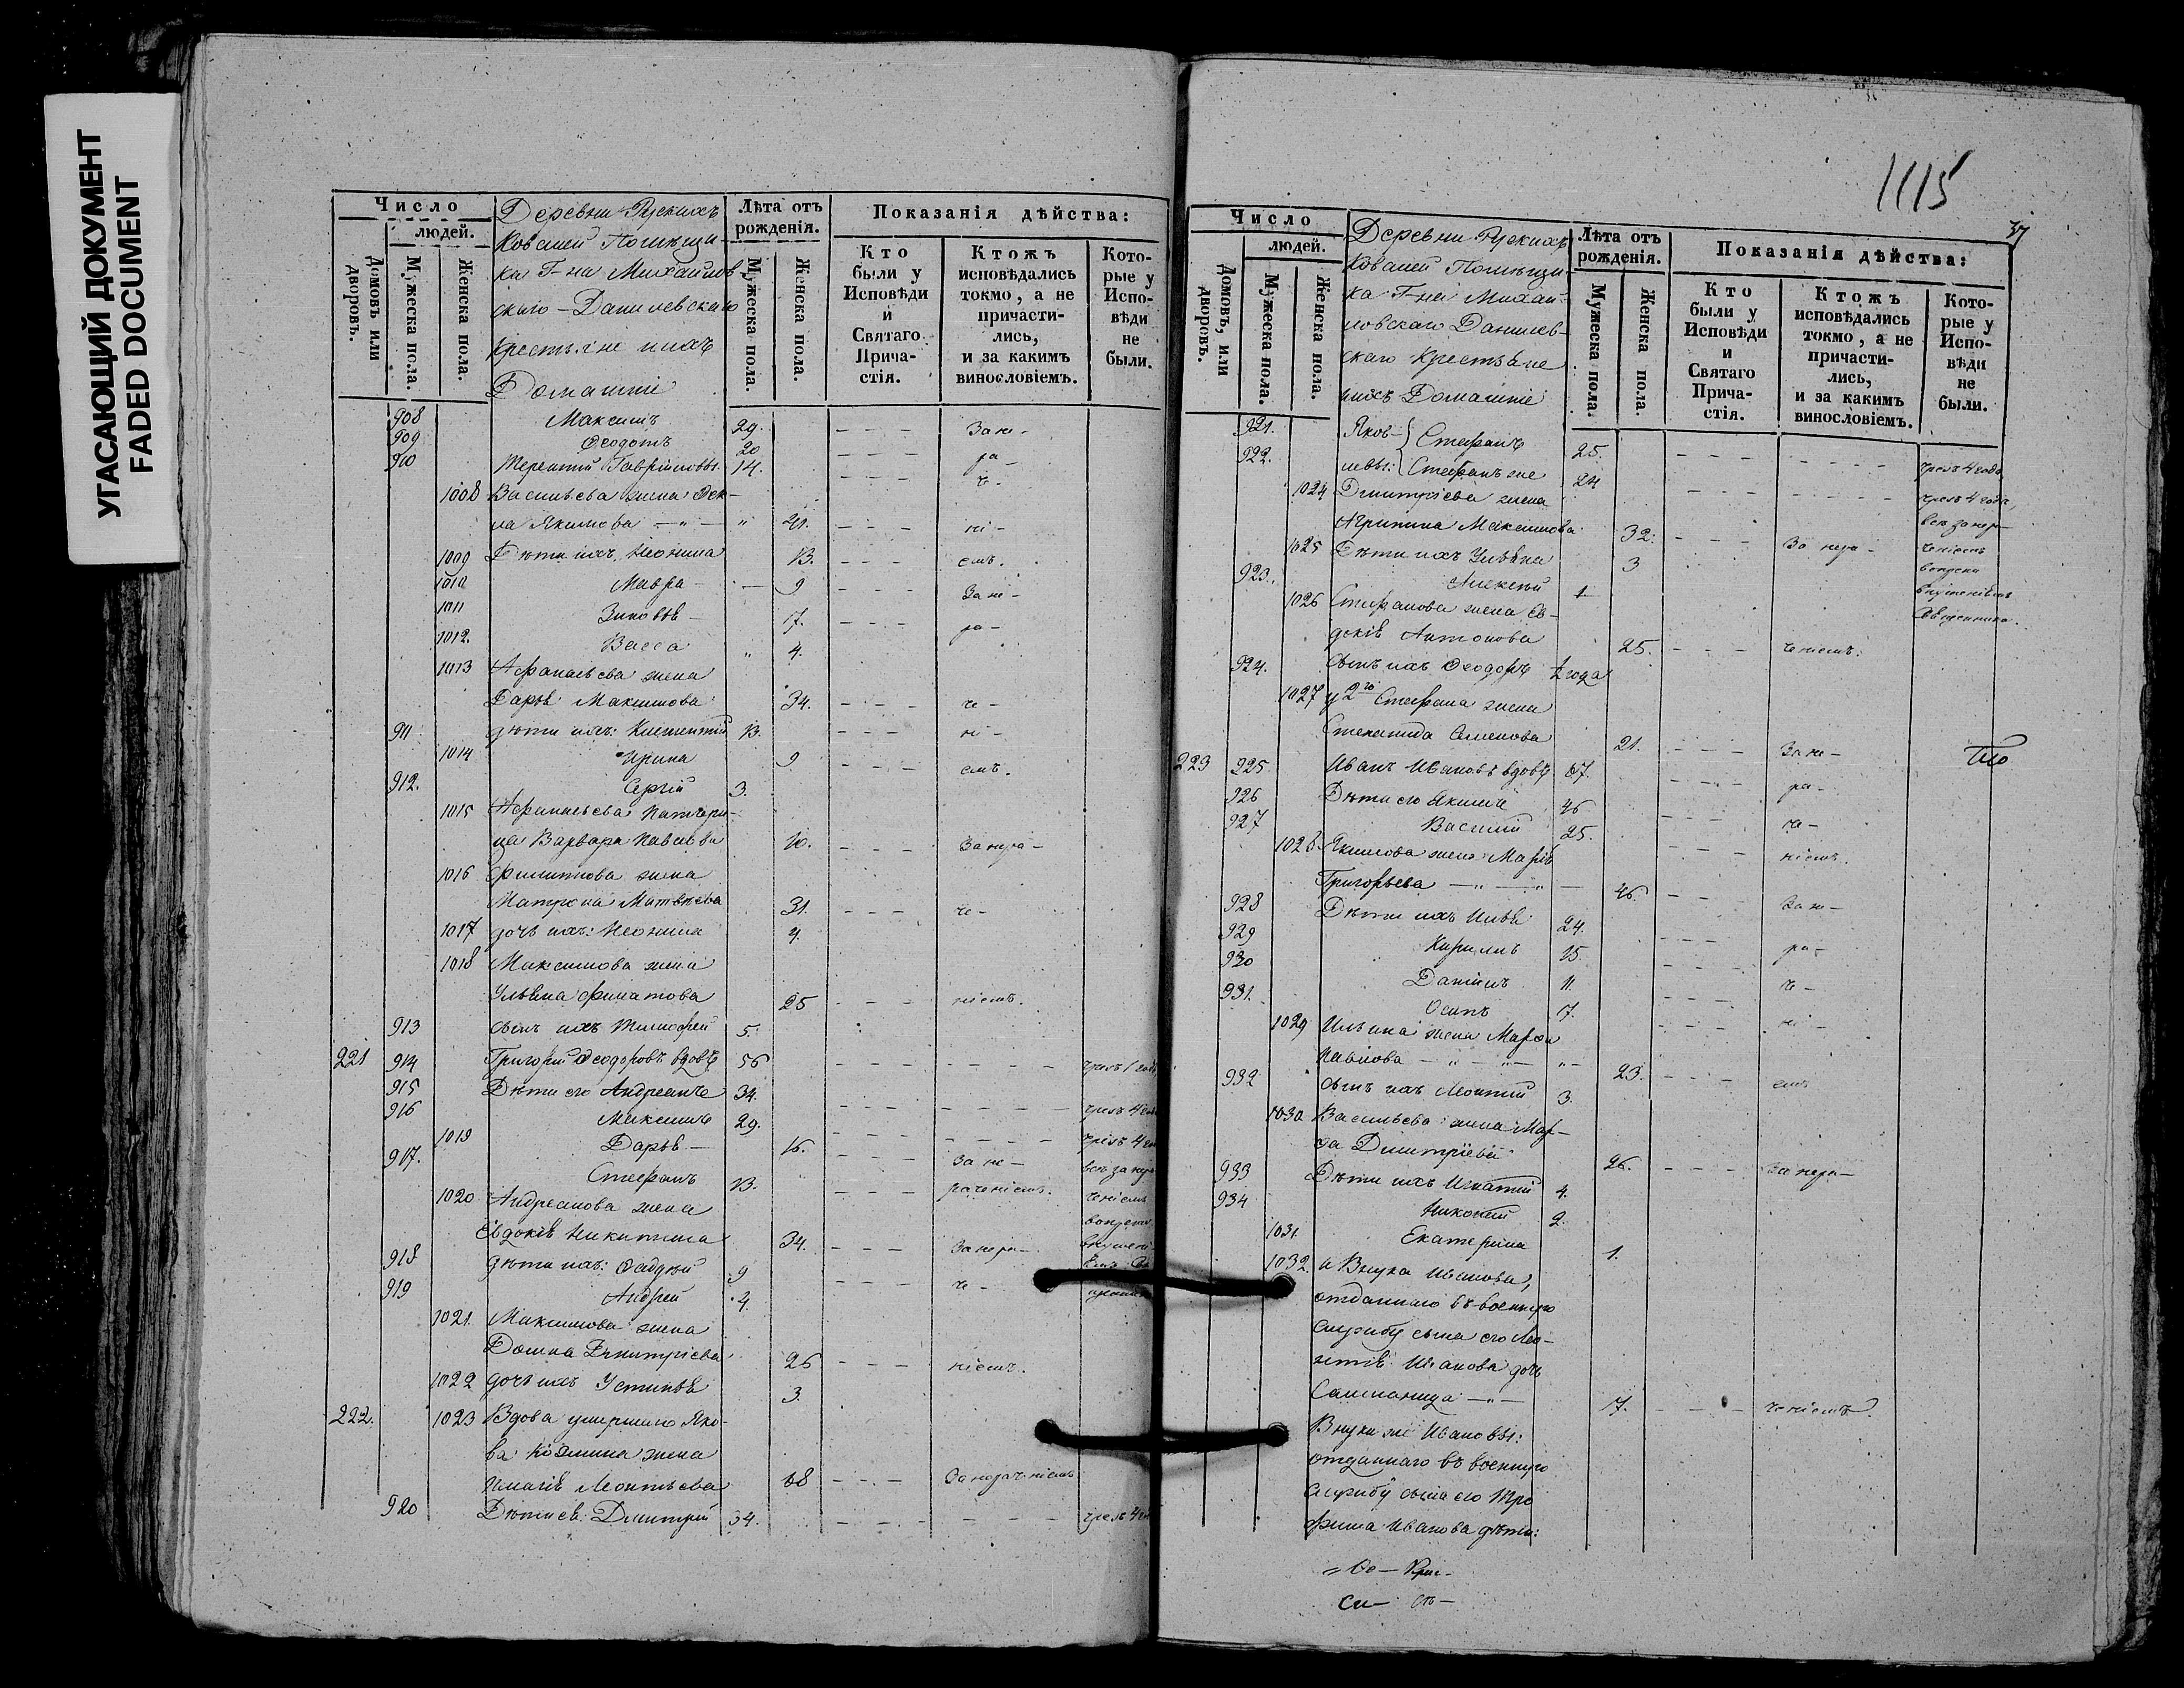 УГАСАЮЩИЙ ДОКУМЕНТ
FADED DOCUMENT
Число
людей.
Домовъ или дворовъ.
Мужеска пола.
Женска пола.
Деревни Рускихъ
Ковалей Помѣщи-
ка Г-на Михайлов-
скаго-Данилевскаго
крестьяне и ихъ
Домашніе
Лѣта отъ рожденія.
Мужеска пола.
Женска пола.
Показанія дѣйства:
Кто были у Исповѣди и Святаго Прича-стія.
Ктожъ исповѣдались токмо, а не причасти-лись, и за какимъ винословіемъ.
Кото-рые у Испо-вѣди не были.
908 Максимъ 29. - - - За не-
909 Ѳеодотъ 20 - - - ра-
910 Терентій Гавріиловы 14. - - - че-
1008 Васильева жена Ѳек-
ла Якимова — " — " 41. - - - ні-
1009 Дѣти ихъ, Неонила 13. - - - емъ.
1010 Мавра — 9 - - - За не-
1011 Зиновія — 7. - - - ра-
1012. Васса " 4.
1013 Афанасьева жена
Дарья Максимова 34. - - - че-
911 дѣти ихъ: Климентій 13. - - - ні-
1014 Ирина 9 - - - емъ.
912. Сергій 3.
1015 Афанасьева
Варвара Павлова - - - За нера-
1016 Филипова жена
Матрона Матвѣева 31. - - - че-
1017 дочь ихъ: Неонила 4.
1018 Максимова жена
Ульяна Филатова 25 - - - ніемъ.
913 сынъ ихъ Тимофей 5.
221 914 Григорій Ѳеодоровъ вдовъ 56 - - - - - -
915 Дѣти его Андреанъ 34. - - - - - -
916 Максимъ 29. - - - - - -
1019 Дарья — 16. - - - За не-
917. Стефанъ 13. - - - раченіемъ.
1020 Андреанова жена
Евдокія Никитина 34. - - - За нера-
918 дѣти ихъ: Фаддей 9 - - - че-
919 Андрей 4.
1021. Максимова жена
Домна Димитріева 26 - - - ніемъ.
1022 дочь ихъ Устинья 3.
222. 1023 Вдова умершаго Яко-
ва Козмина жена
Леонтьева 68 - - - За нераченіемъ
920 Дѣти ея: Димитрій 34. - - - - - -
1115
37
Число
людей.
Домовъ, или дворовъ.
Мужеска пола.
Женска пола.
Деревни Рускихъ
Ковалей Помѣщи-
ка Г-на Михай-
ловскаго Данилев-
скаго Крестьяне
и ихъ Домашніе
Лѣта отъ рожденія.
Мужеска пола.
Женска пола.
Показанія дѣйства:
Кто были у Исповѣди и Святаго Прича-стія.
Ктожъ исповѣдались токмо, а не причасти-лись, и за какимъ винословіемъ.
Кото-рые у Испо-вѣди не были.
921. Яков- Стефанъ 25. - - - - - - чрезъ 4 года
922. левы: Стефанъ же 24 - - - - - - чрезъ 4 года,
1024 Димитріева жена всѣ за нер-
Агрипина Максимова 32. - - - За нера- ченіемъ
1025 Дѣти ихъ Ульяна 3 вопреки
923. Алексѣй 1 внушеніямъ
1026 Стефанова жена Ев- Священника.
докія Антонова 25. - - - ченіемъ.
924. Сынъ ихъ Ѳеодоръ ½ года
1027 у 2го Стефана жена
Степанида Семенова 21. - - - За не-
223 925 Иванъ Ивановъ вдовъ 67. - - - ра-
926 Дѣти его Якимъ 46 - - - че-
927 Василій 25. - - - ніемъ.
1028. Якимова жена Марія
Григорьева — " — " — 46. - - - За не-
928 Дѣти ихъ Илья 24. - - - ра-
929 Кирилъ 15. - - - че-
930 Даніилъ 11. - - - ні-
931. Осипъ 7.
1029 Ильина жена Марѳа
Павлова — " — " — 23. - - - емъ
932 сынъ ихъ Леонтій 3.
1030 Васильева жена Мар-
ѳа Димитріева 26. - - - За нера-
933 Дѣти ихъ Игнатій 4.
934 Никонъ 2.
1031. Екатерина 1.
1032. а Внука Иванова,
отданнаго въ военную
службу сына его Лео-
нтія Иванова дочь
Саломанида — " — 7. - - - ченіемъ.
Внуки же Ивановы:
отданнаго въ военную
службу сына его Тро
фима Иванова дѣти: